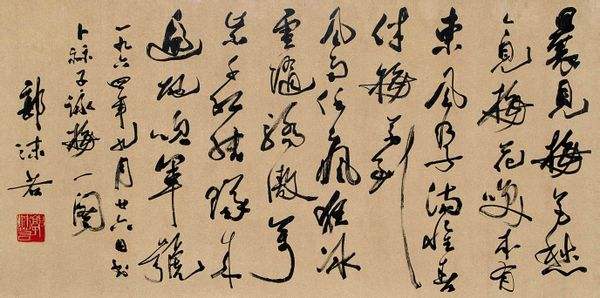 曩見梅花愁
今見梅花笑本有
東風孕滿懷春
伴梅花到
風雨任瘋狂冰
雪隨驕傲萬
紫千紅結隊來
遍地吹軍號
一九六四年九月廿六日書
卜祘子詠梅一闋
郭沫若